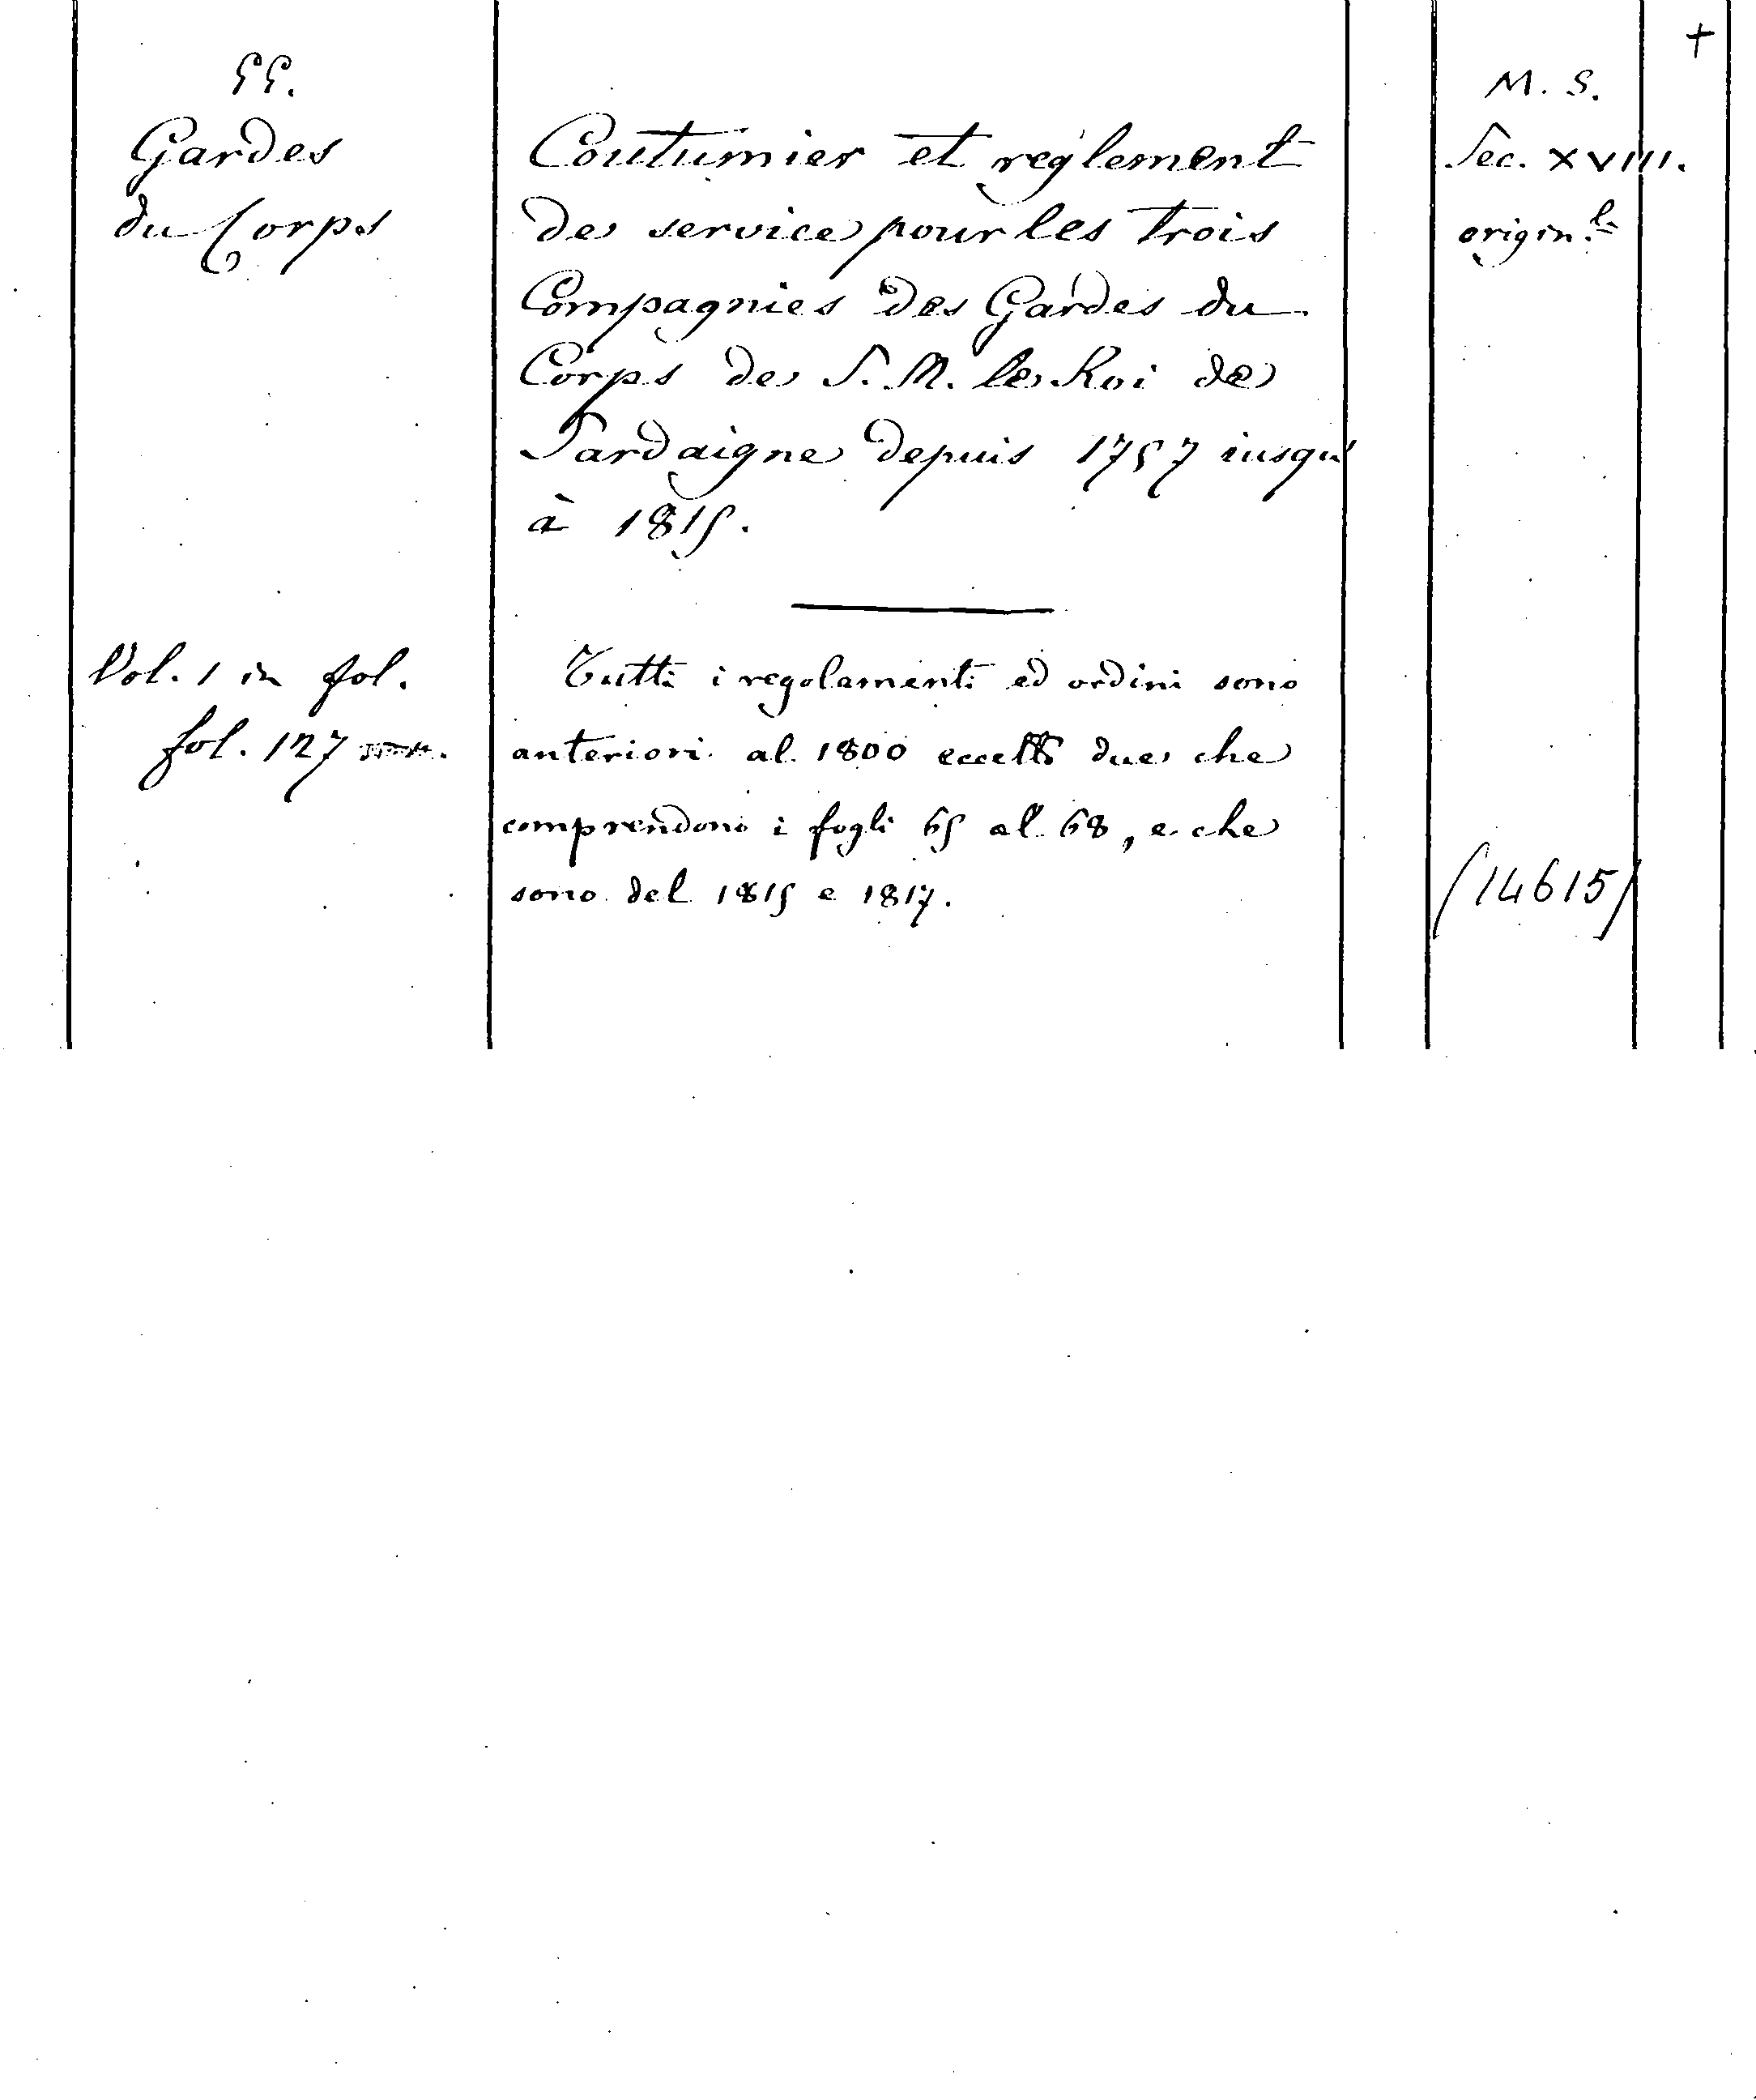 55.
Gardes
du Corps
Coutumier et réglement
de service pour les trois
Compagnies des Gardes du
Corps de S. M. le Roi de
Sardaigne depuis 1757 iusqu'
à 1815.
Vol. 1 in fol.
fol. 127
Tutti i regolamenti ed ordini sono
anteriori al 1800 eccetto due che
comprendono i fogli 65 al 68, e che
sono del 1815 e 1817.
+
M. S.
Sec. XVIII.
origin.le
(14615)